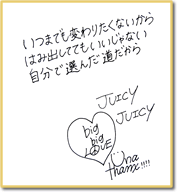 いつまでも変わりたくないから
はみ出しててもいいじゃない
自分で選んだ道だから
JUICY
JUICY
big
big
LOVE
Una
thanx!!!!